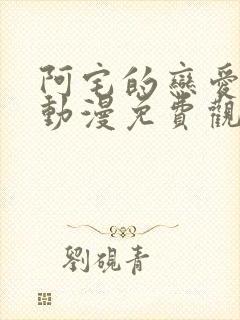 阿宅的戀愛
動漫免費觀
劉硯青